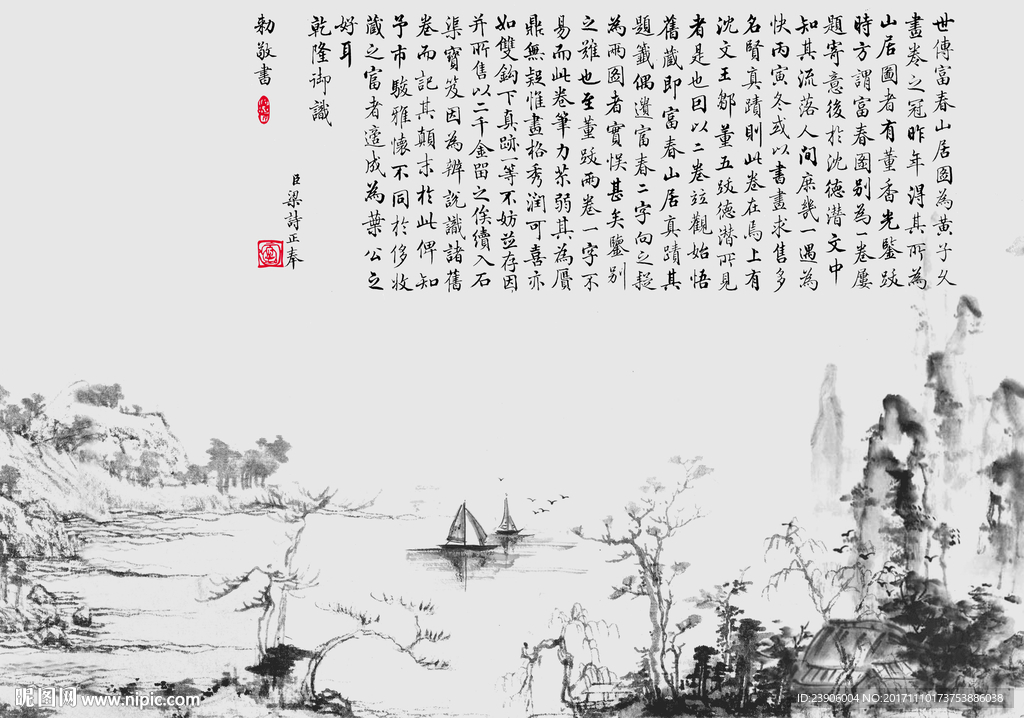 世傳富春山居圖為黃子久
畫卷之冠昨年得其所為
山居圖者有董香光鑒跋
時方謂富春圖別為一卷屢
題寄意後於沈德潛文中
知其流落人間庶幾一遇為
快丙寅冬或以書畫求售多
名賢真蹟則此卷在焉上有
沈文王鄒董五跋德潛所見
者是也因以二卷竝觀始悟
舊藏即富春山居真蹟其
題籤偶遺富春二字向之疑
為兩圖者實悞甚矣鑒別
之難也至董跋兩卷一字不
易而此卷筆力苶弱其為贗
鼎無疑惟畫格秀潤可喜亦
如雙鉤下真跡一等不妨並存因
并所售以二千金留之俟續入石
渠寶笈因為辨說識諸舊
卷而記其顛末於此俾知
予市駿雅懷不同於侈收
藏之富者適成為葉公之
好耳
乾隆御識
臣梁詩正奉
勅敬書
昵图网 www.nipic.com
ID:23906004 NO:20171110173753886038